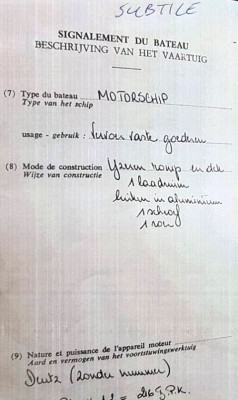 SUBTILE
SIGNALEMENT DU BATEAU
BESCHRIJVING VAN HET VAARTUIG
(7) Type du bateau MOTORSCHIP
Type van het schip
usage - gebruik : vervoer vaste goederen
(8) Mode de construction Yzeren romp en dek
Wijze van constructie 1 laadruim
luiken in aluminium
1 schroef
1 roer
(9) Nature et puissance de l'appareil moteur
Aard en vermogen van het voortstuwingswerktuig
Deutz (zonder nummer)
= 216 P.K.